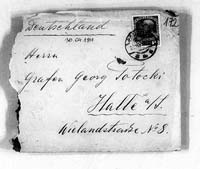 Deutschland
30.04.1911
Herrn
Grafen Georg Potocki
Halle a/S.
Wielandstrasse No 8.